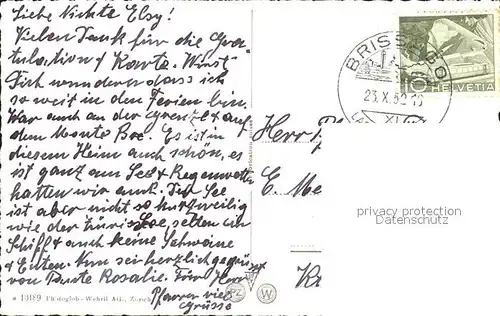 Liebe Nichte Elsy!
Vielen Dank für die Gra-
tulation & Karte. Wirst
Dich wundern dass ich
so weit in den Ferien bin.
War auch an der Grenze & auf
dem Monte Bre. Es ist in
diesem Heim auch schön, es
ist ganz am See & Regenwetter
hatten wir auch. Der See
ist aber nicht so kurzweilig
wie der Züri See, selten ein
Schiff & auch keine Schwäne
& Enten. Nun sei herzlich gegrüsst
von Tante Rosalie. Für Herr
Pfarrer viel
Grüsse
13189 Photoglob-Wehrli AG., Zürich
PZ W
BRISSAGO
23.X.52
10
HELVETIA
Herr
E. Me
privacy protection
Datenschutz